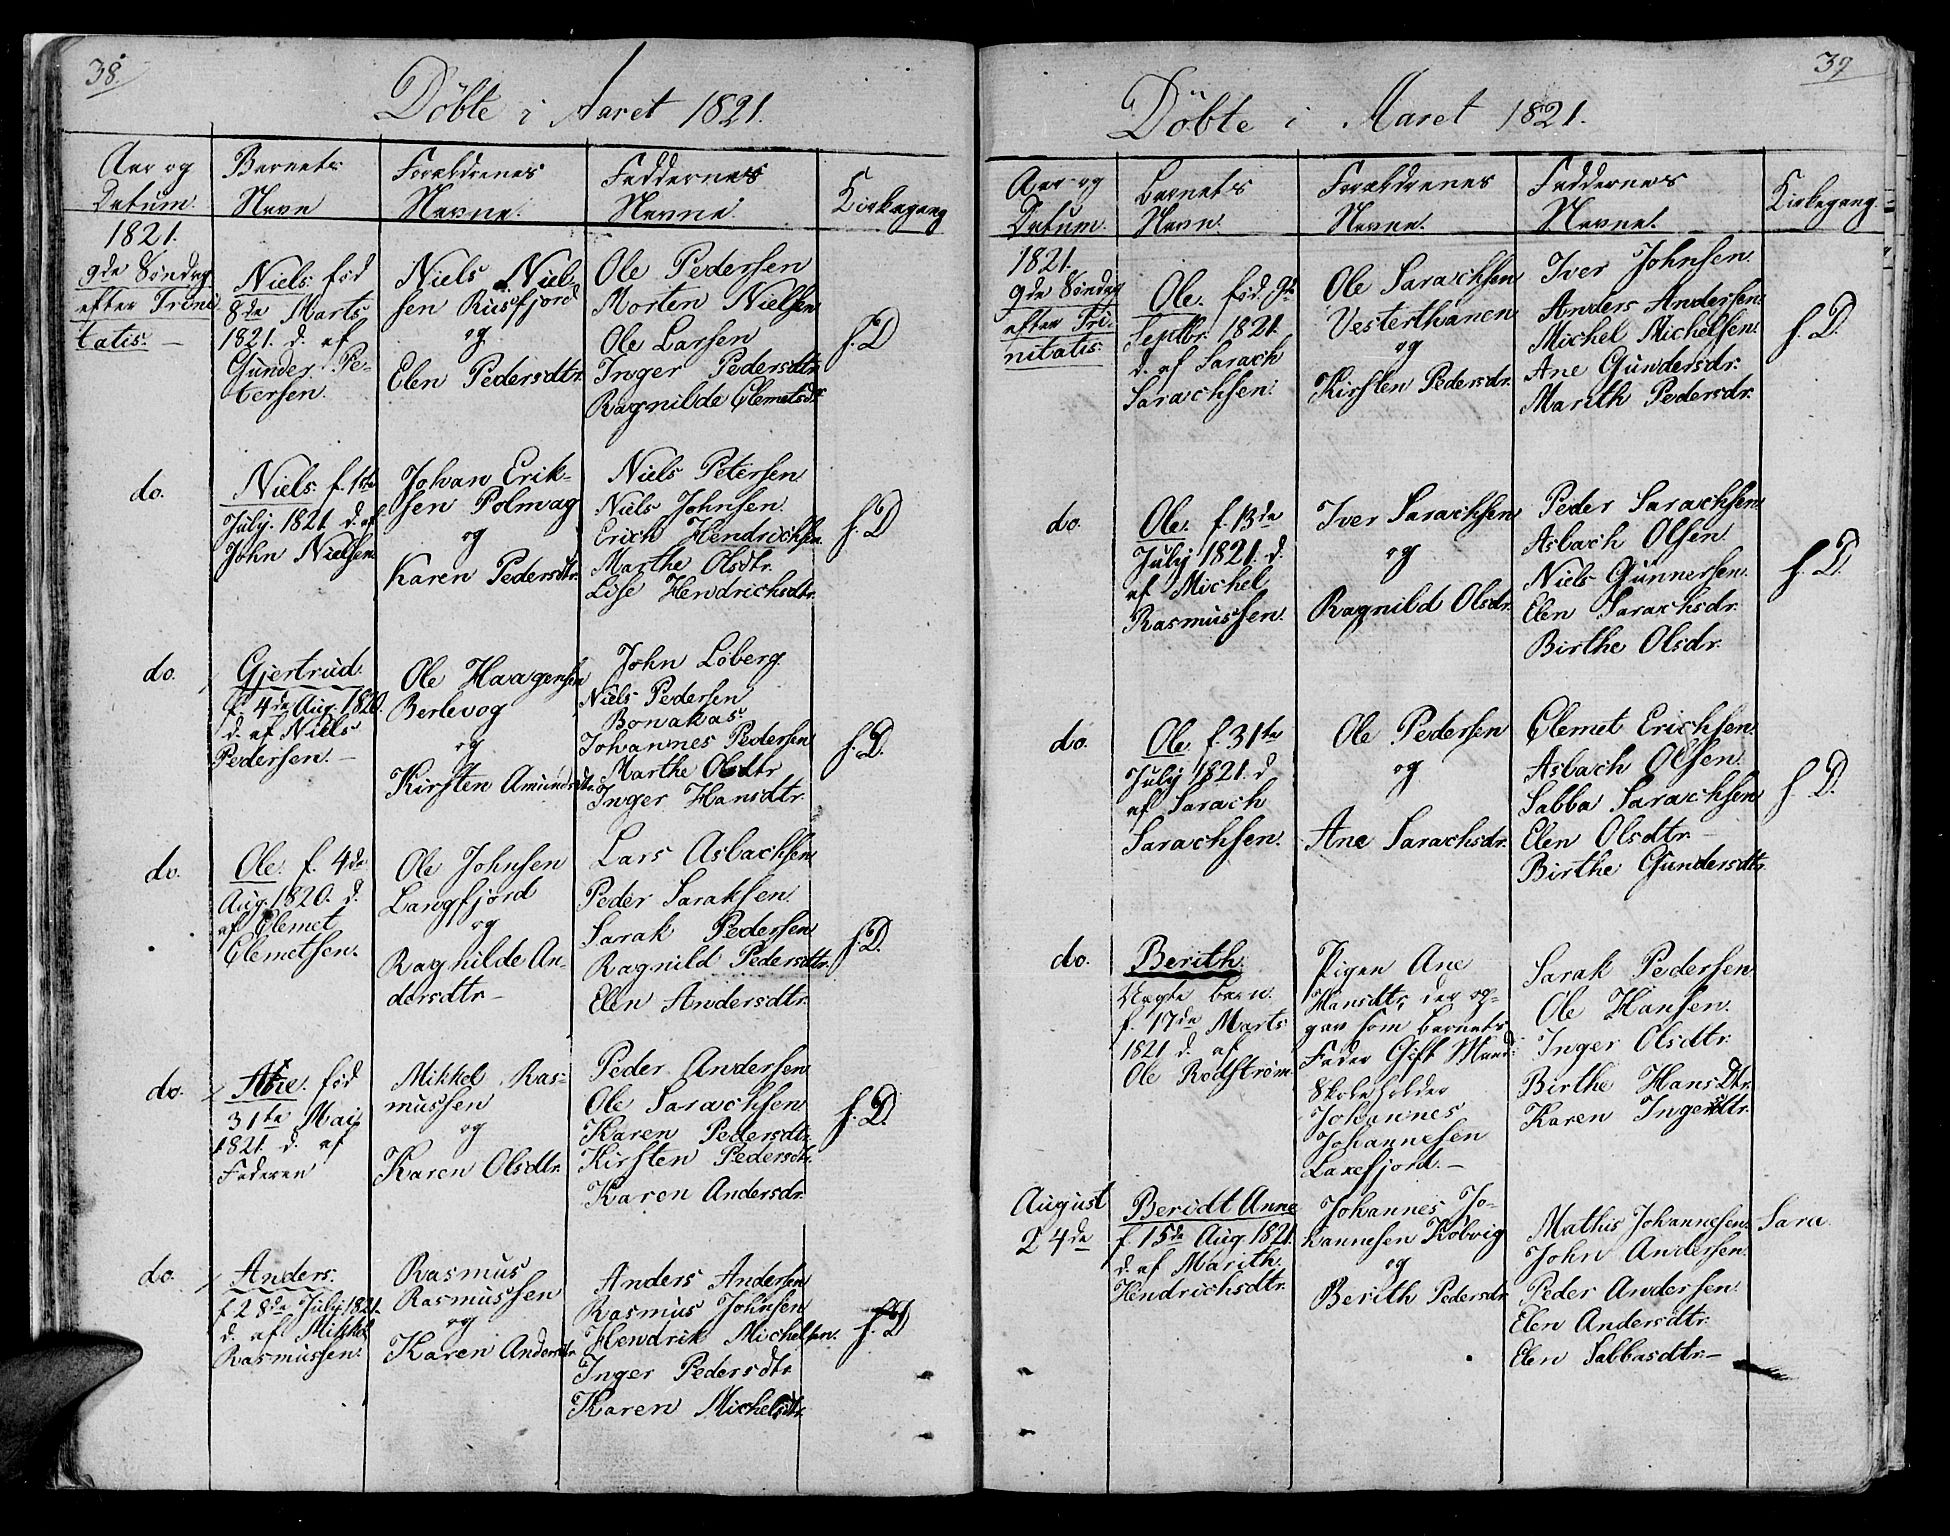 38.
Döbte i Aaret 1821.
Aar og
Datum
Barnets
Navn
Forældrenes
Navne.
Faddernes
Navne.
Kirkegang
1821.
9de Söndag
efter Trini
tatis. —
Niels. föd
8de Marts
1821. d. af
Gunder Pe-
tersen.
Niels Niel-
sen Rusfjord
og
Elen Pedersdtr.
Ole Pedersen
Morten Nielsen
Ole Larsen
Inger Pedersdtr.
Ragnilde Clemetsdr
f. D
do.
Niels. f. 1ste
July. 1821. d. af
John Nielsen
Johan Erik-
sen Polmag
og
Karen Pedersdtr.
Niels Petersen
Niels Johnsen.
Erich Hendrichsen
Marthe Olsdtr.
Lise Hendrichsdtr.
f. D
do.
Gjertrud.
f. 4de Aug. 1820.
d. af Niels
Pedersen. —
Ole Haagensen
Berlevog
og
Kirsten Amundsdtr.
John Löberg.
Niels Pedersen
Bonakas.
Johannes Pedersen
Marthe Olsdtr
Inger Hansdtr.
f. D.
do.
Ole. f. 4de
Aug. 1820. d.
af Clemet
Clemetsen.
Ole Johnsen
Langfjord
og
Ragnilde An-
dersdtr —
Lars Asbachsen
Peder Saraksen.
Sarak Pedersen
Ragnild Pedersdtr.
Elen Andersdtr.
f. D.
do.
Ane. föd
31te Mai
1821. d. af
Faderen
Mikkel Ras-
mussen
og
Karen Olsdtr.
Peder Andersen
Ole Sarachsen
Karen Pedersdtr.
Kirsten Pedersdtr.
Karen Andersdr.
f. D.
do.
Anders.
f. 28de July. 1821.
d. af Mikkel
Rasmussen.
Rasmus
Rasmussen
og
Karen Andersdtr
Anders Andersen
Rasmus Johnsen
Hendrik Michelsen.
Inger Pedersdtr
Karen Michelsdtr.
f. D
39
Döbte i Aaret 1821.
Aar og
Datum.
Barnets
Navn.
Forældrenes
Navne.
Faddernes
Navne.
Kirkegang.
1821.
9de Söndag
efter Tri-
nitatis.
Ole. föd. 9de
Septbr. 1821.
d. af Sarach
Sarachsen.
Ole Sarachsen
Vesterthanen
og
Kirsten Pedersdr.
Iver Johnsen
Anders Andersen.
Michel Michelsen.
Ane Gundersdr.
Marith Pedersdr.
f. D.
do.
Ole. f. 13de
July 1821. d.
af Michel
Rasmussen.
Iver Sarachsen
og
Ragnild Olsdr.
Peder Sarachsen
Asbach Olsen
Niels Gunnersen.
Elen Sarachsdr.
Birthe Olsdr.
f. D.
do.
Ole. f. 31te
July 1821. d
af Sarach
Sarachsen.
Ole Pedersen
og
Ane Sarachsdr.
Clemet Erichsen.
Asbach Olsen.
Sabba Sarachsen
Elen Olsdtr —
Birthe Gundersdtr.
f. D.
do.
Berith.
Uægte barn.
f. 17de Marts
1821 d. af
Ole Rodström.
Pigen Ane
Hansdtr, der op-
gav som barnets
Fader Gift Mand.
Skoleholder
Johannes
Johannesen
Laxefjord. —
Sarak Pedersen
Ole Hansen.
Inger Olsdtr.
Birthe HansDtr.
Karen Ingersdtr.
August
24de
Beridt Anne
f. 15de Aug. 1821.
d. af Marith.
Hendrichsdtr.
Johannes Jo-
hannesen Kobvig
og
Berith Pedersdr.
Mathis Johannesen.
John Andersen.
Peder Andersen.
Elen Andersdtr.
Elen Sabbasdtr. —
Sara.